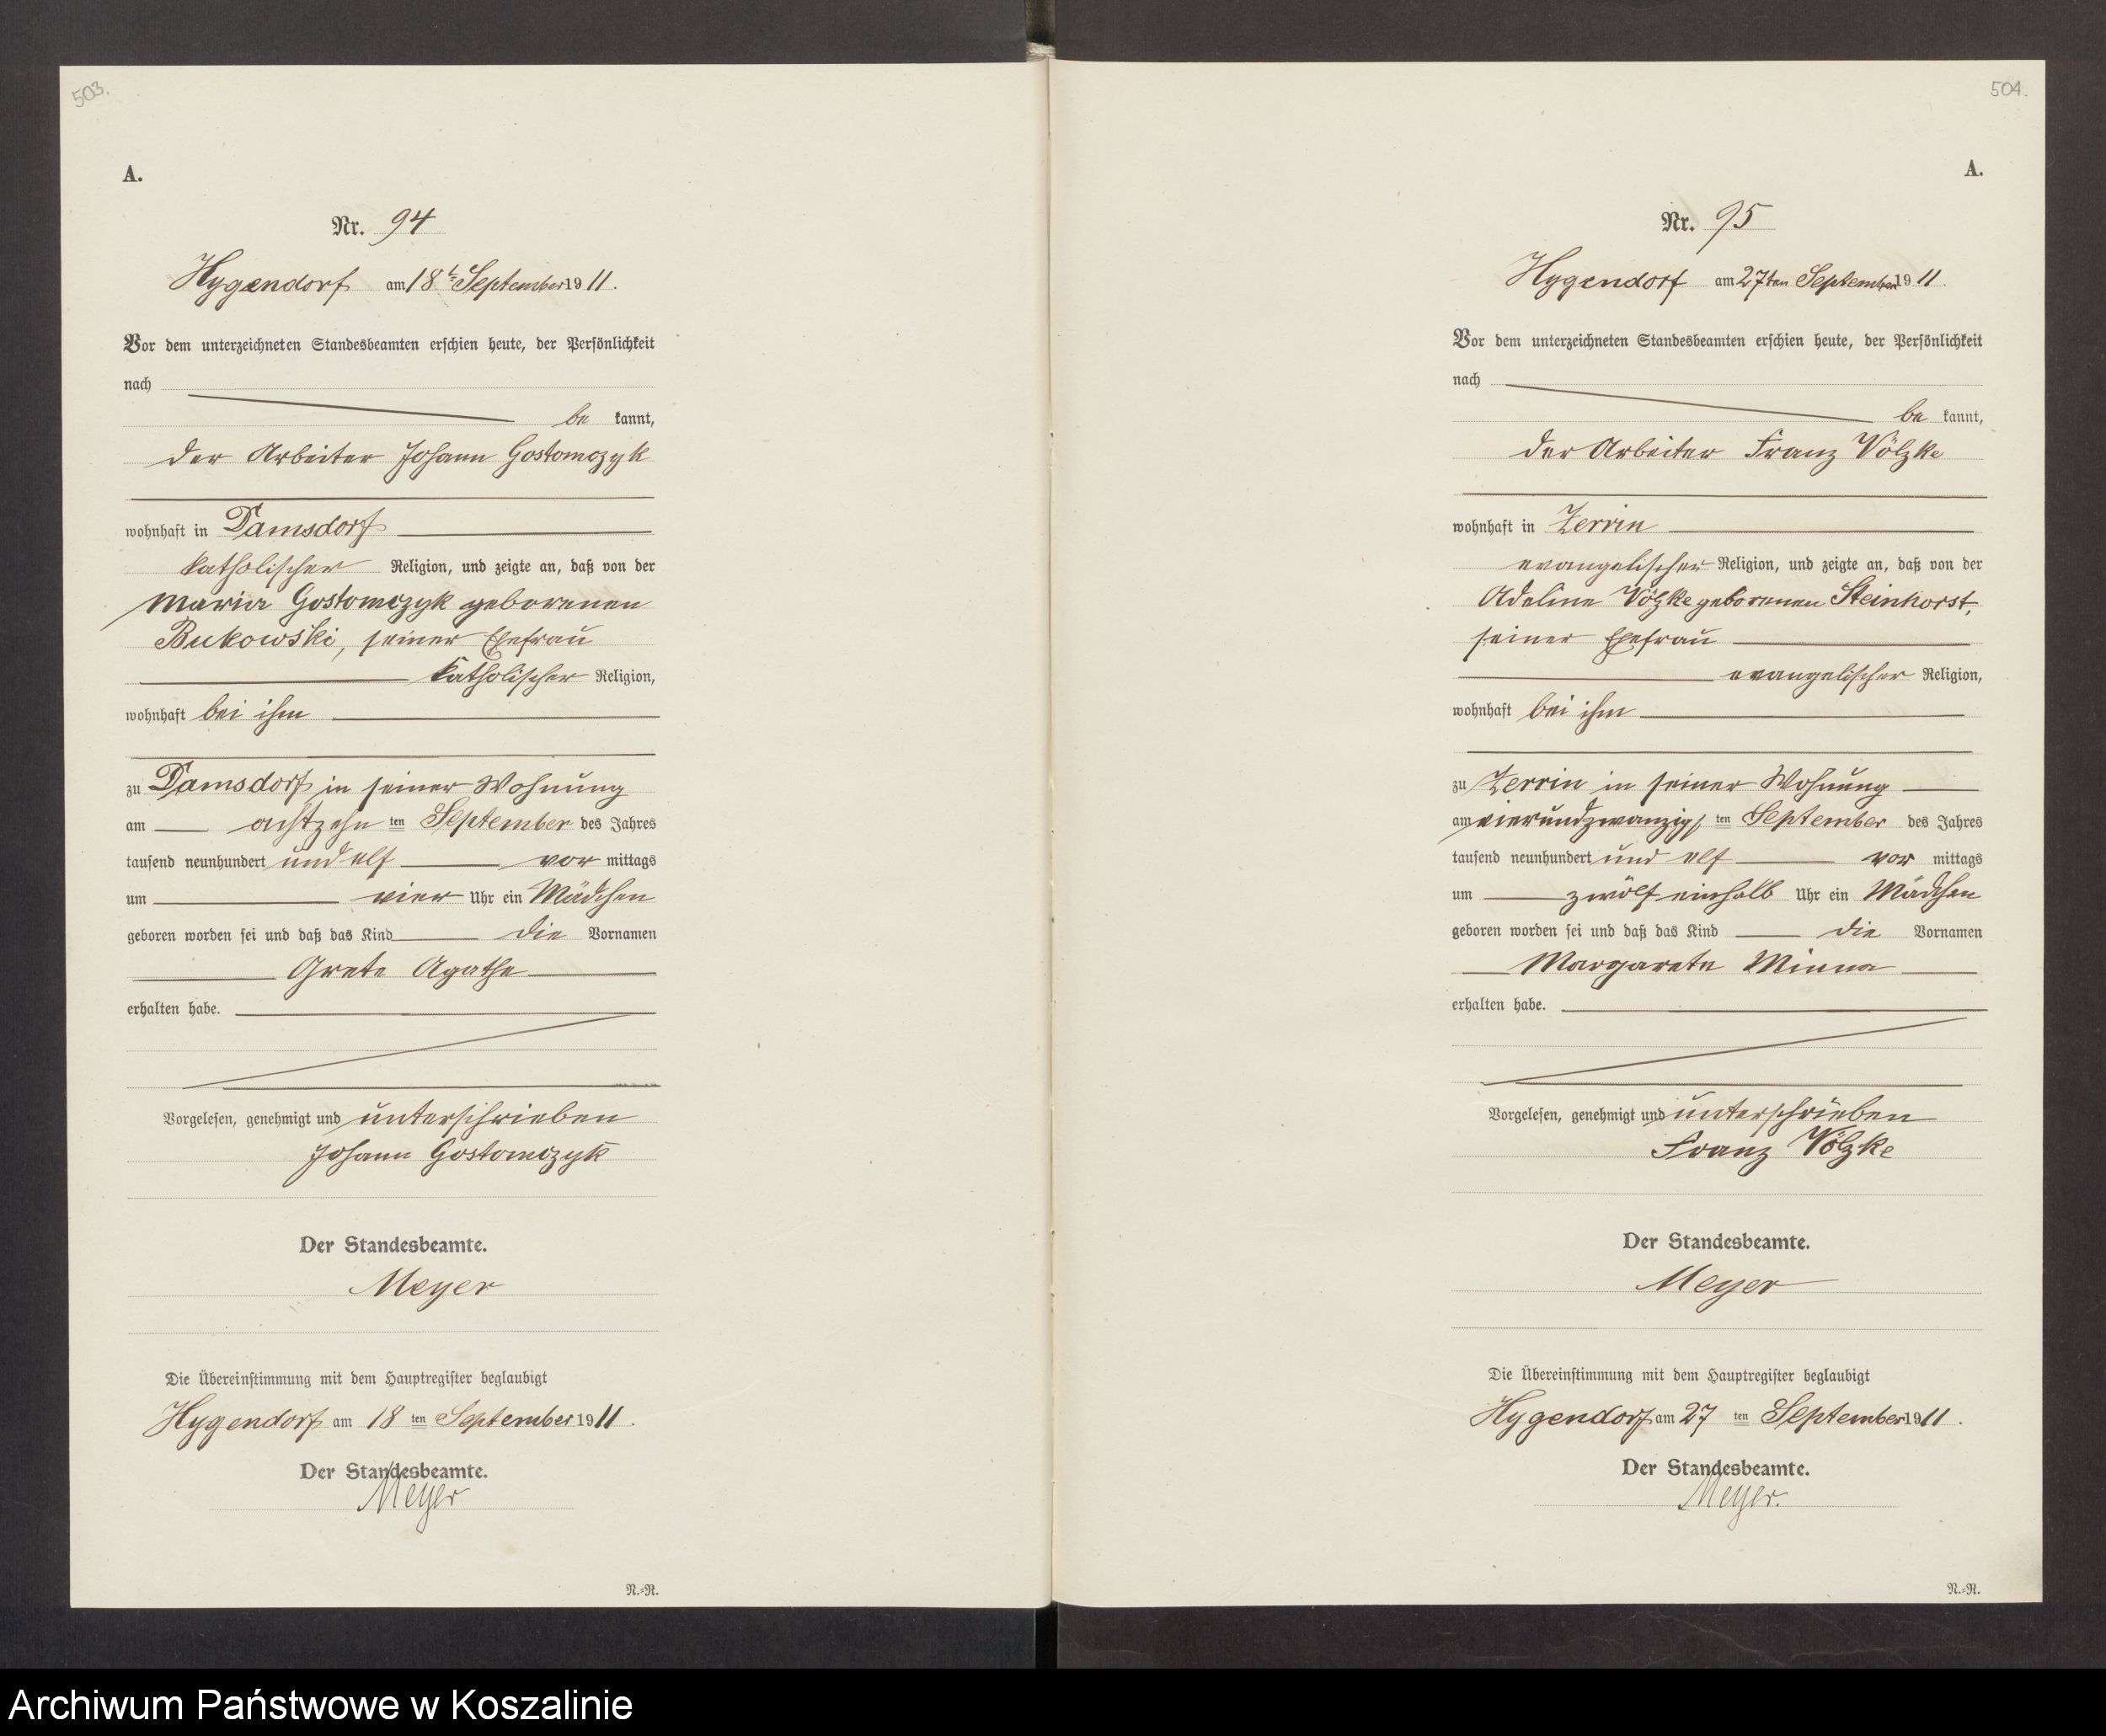 503.
A.
Nr. 94
Hygendorf am 18t. September 1911.
Vor dem unterzeichneten Standesbeamten erschien heute, der Persönlichkeit
nach
be kannt,
der Arbeiter Johann Gostomczyk
wohnhaft in Damsdorf
katholischer Religion, und zeigte an, daß von der
Maria Gostomczyk geborenen
Bukowski, seiner Ehefrau
katholischer Religion,
wohnhaft bei ihm
zu Damsdorf in seiner Wohnung
am achtzehn ten September des Jahres
tausend neunhundert und elf vor mittags
um vier Uhr ein Mädchen
geboren worden sei und daß das Kind die Vornamen
Grete Agathe
erhalten habe.
Vorgelesen, genehmigt und unterschrieben
Johann Gostomczyk
Der Standesbeamte.
Meyer
Die Übereinstimmung mit dem Hauptregister beglaubigt
Hygendorf am 18 ten September 1911.
Der Standesbeamte.
Meyer
N.=R.
504.
A.
Nr. 95
Hygendorf am 27ten September 1911.
Vor dem unterzeichneten Standesbeamten erschien heute, der Persönlichkeit
nach
be kannt,
der Arbeiter Franz Völzke
wohnhaft in Zerrin
evangelischer Religion, und zeigte an, daß von der
Adeline Völzke geborenen Steinhorst,
seiner Ehefrau
evangelischer Religion,
wohnhaft bei ihm
zu Zerrin in seiner Wohnung
am vierundzwanzigs ten September des Jahres
tausend neunhundert und elf vor mittags
um zwölf einhalb Uhr ein Mädchen
geboren worden sei und daß das Kind die Vornamen
Margarete Minna
erhalten habe.
Vorgelesen, genehmigt und unterschrieben
Franz Völzke
Der Standesbeamte.
Meyer
Die Übereinstimmung mit dem Hauptregister beglaubigt
Hygendorf am 27 ten September 1911.
Der Standesbeamte.
Meyer.
N.=R.
Archiwum Państwowe w Koszalinie